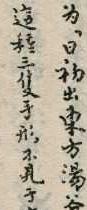 为「日初出東方湯谷
這種三隻手形,不見于